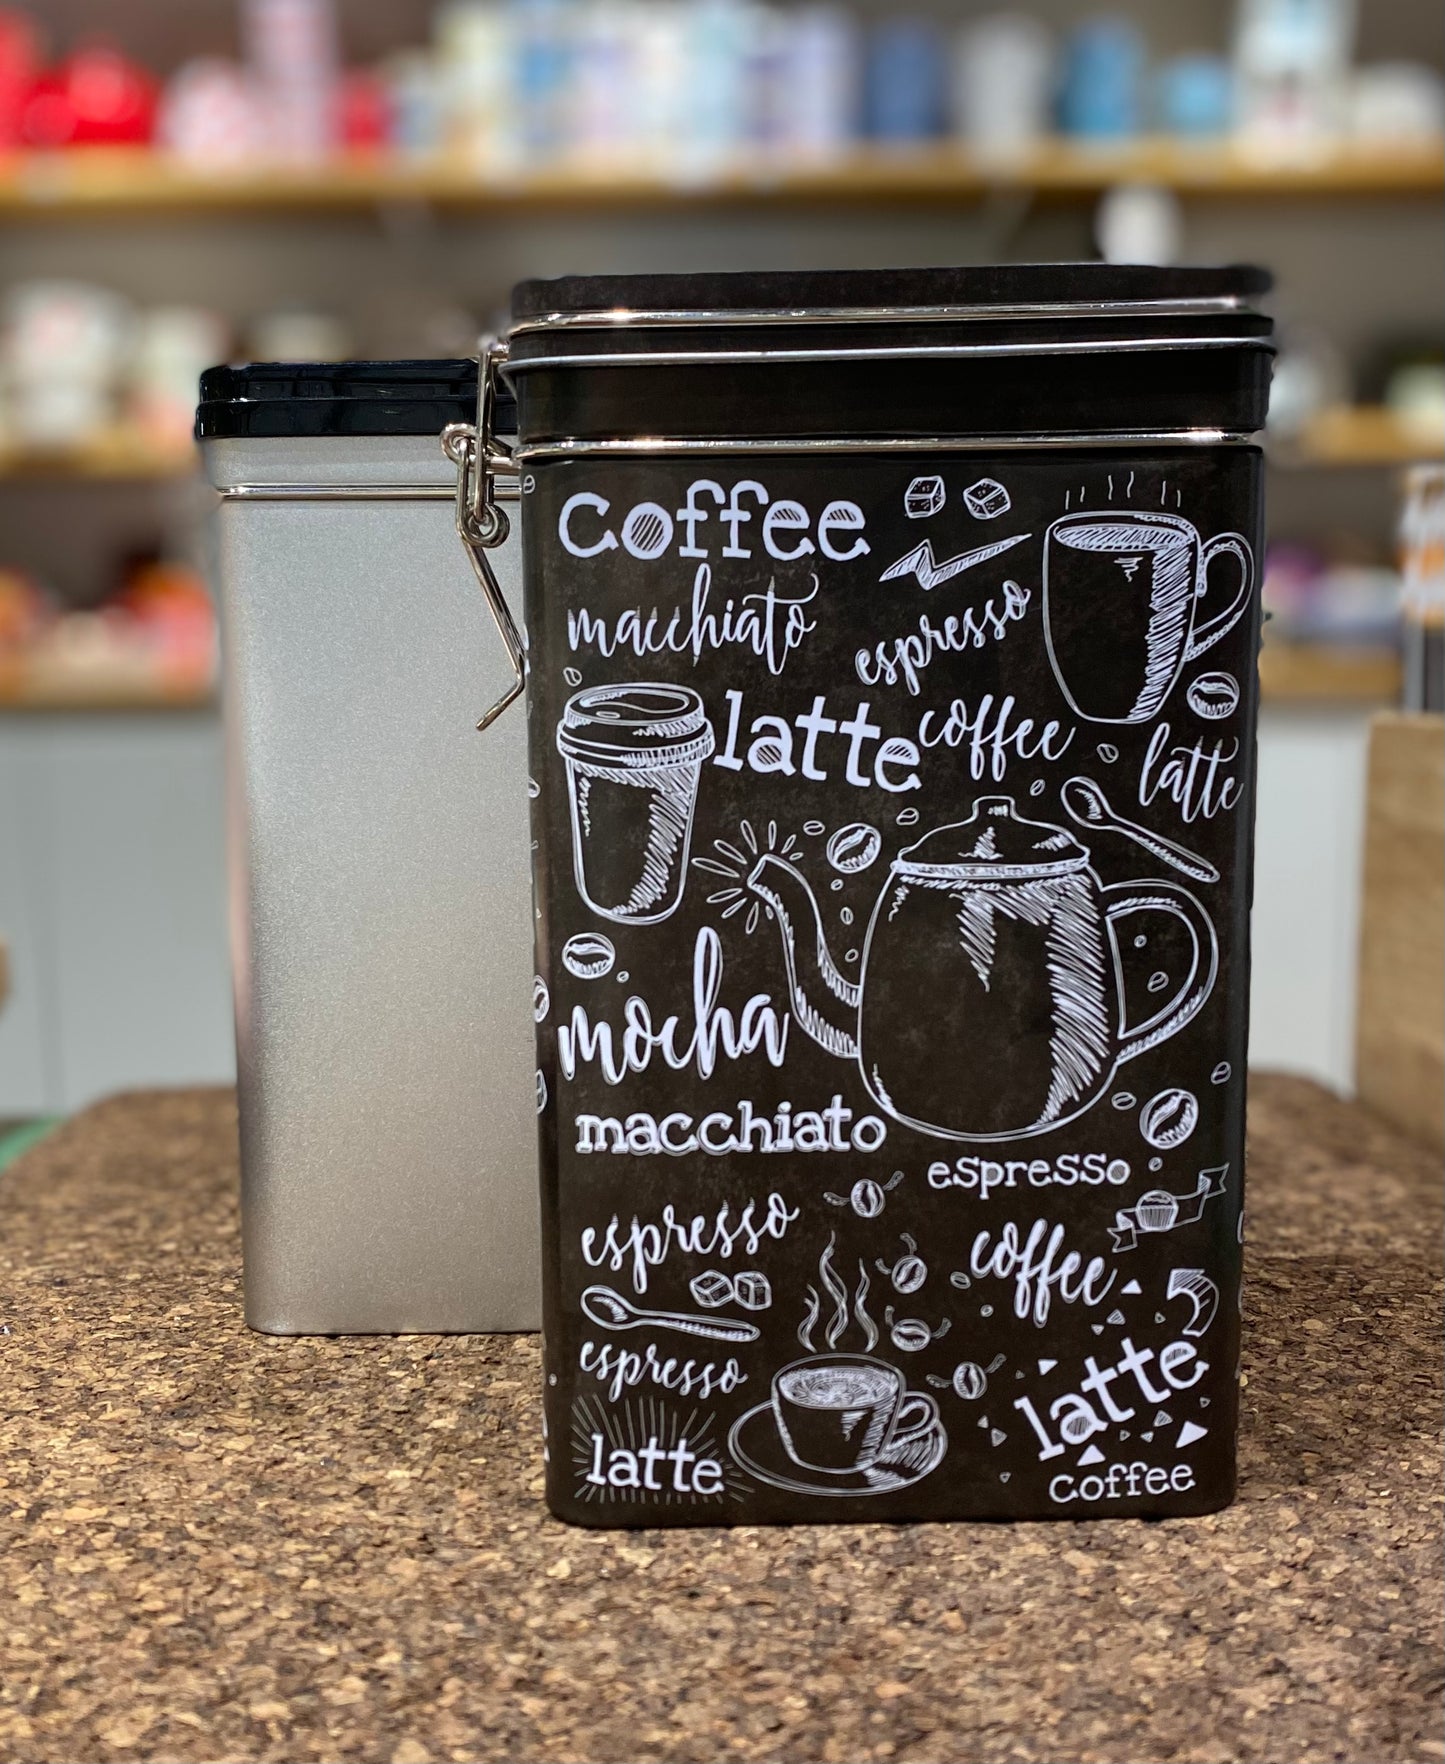 coffee
macchiato
espresso
latte
coffee
latte
mocha
macchiato
espresso
espresso
coffee
espresso
latte
latte
coffee